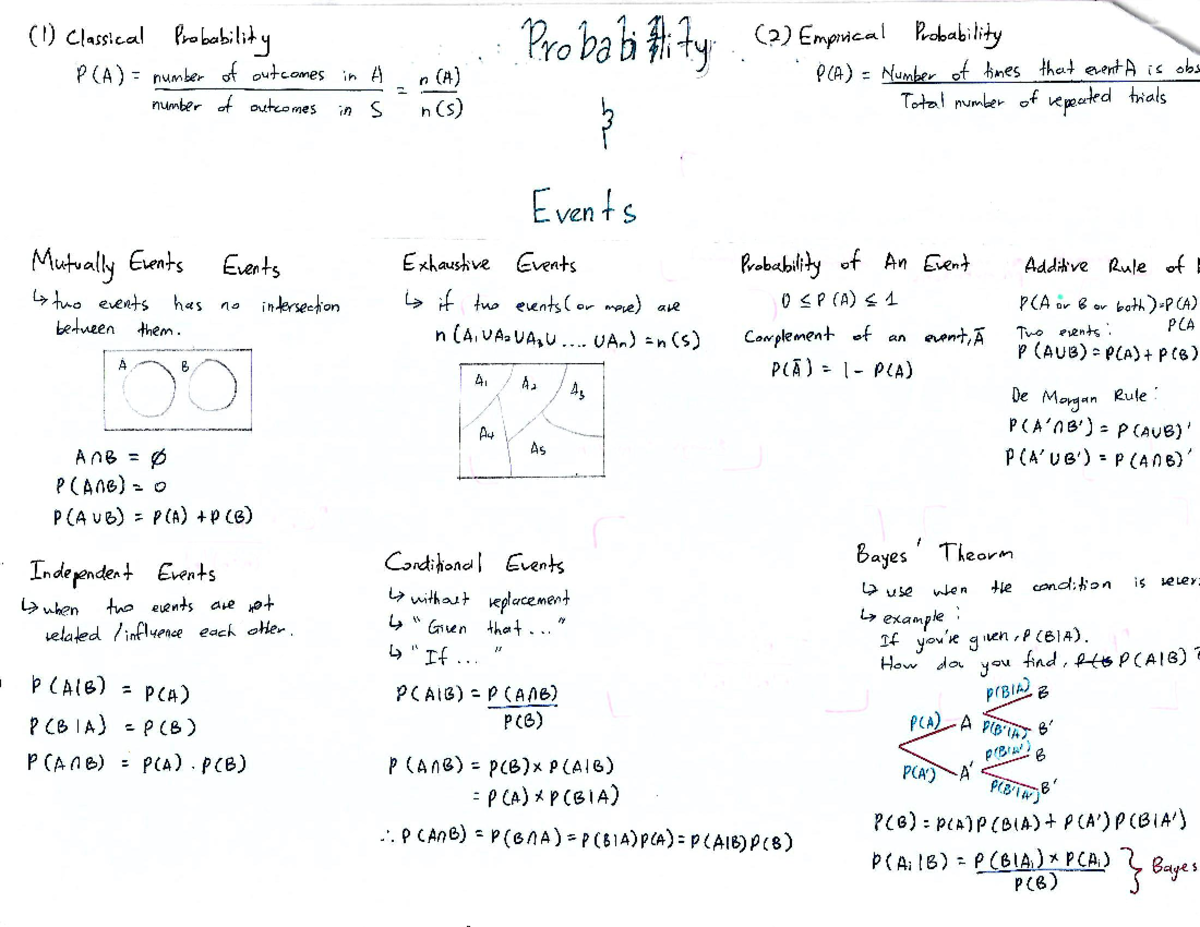 Probability
&
Events
(1) Classical Probability
P(A) = number of outcomes in A / number of outcomes in S = n(A) / n(S)
(2) Empirical Probability
P(A) = Number of times that event A is obs
Total number of repeated trials
Mutually Events Events
↳ two events has no intersection
between them.
A B
A∩B = ∅
P(A∩B) = 0
P(A∪B) = P(A) + P(B)
Exhaustive Events
↳ if two events (or more) are
n(A₁∪A₂∪A₃∪....∪Aₙ) = n(S)
A₁ A₂ A₃
A₄ A₅
Probability of An Event
0 ≤ P(A) ≤ 1
Complement of an event, Ā
P(Ā) = 1 - P(A)
Additive Rule of
P(A or B or both) = P(A)
P(A
Two events:
P(A∪B) = P(A) + P(B)
De Morgan Rule:
P(A'∩B') = P(A∪B)'
P(A'∪B') = P(A∩B)'
Independent Events
↳ when two events are not
related / influence each other.
P(A|B) = P(A)
P(B|A) = P(B)
P(A∩B) = P(A) . P(B)
Conditional Events
↳ without replacement
↳ "Given that..."
↳ "If..."
P(A|B) = P(A∩B) / P(B)
P(A∩B) = P(B) × P(A|B)
= P(A) × P(B|A)
∴ P(A∩B) = P(B∩A) = P(B|A)P(A) = P(A|B)P(B)
Bayes' Theorm
↳ use when the condition is rever
↳ example:
If you're given, P(B|A).
How do you find, P(A|B)?
P(A) A P(B|A) B
P(B'|A) B'
P(A') A' P(B|A') B
P(B'|A') B'
P(B) = P(A)P(B|A) + P(A')P(B|A')
P(Aᵢ|B) = P(B|Aᵢ) × P(Aᵢ) / P(B) } Bayes